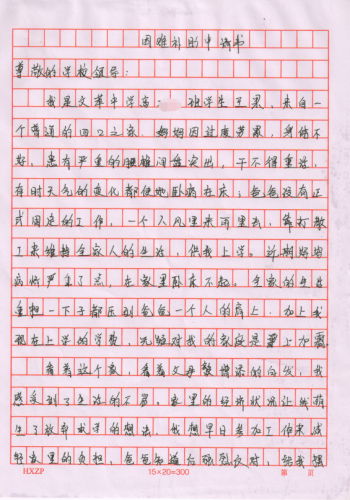 困难补助申请书
尊敬的学校领导：
我是文革中学高 班学生王 ，来自一
个普通的四口之家，妈妈因过度劳累，身体不
好，患有严重的腰椎间盘突出，干不得重活，
有时天气的变化都使她卧病在床；爸爸没有正
式固定的工作，一个人风里来雨里去，靠打散
工来维持全家人的生活，供我上学。近期妈妈
病情严重了，在家里卧床不起。全家的
重担一下子都压到爸爸一个人的肩上，加上我
现在上学的学费，无疑对我的家庭是雪上加霜
看着这个家，看着父母 增添的白发，我
感受到了生活的不易，家里的经济状况让我萌
生了放弃求学的想法，我想早日参加工作来减
轻家里的负担，爸爸知道后强烈反对，给我
HXZP 15×20=300 第 页